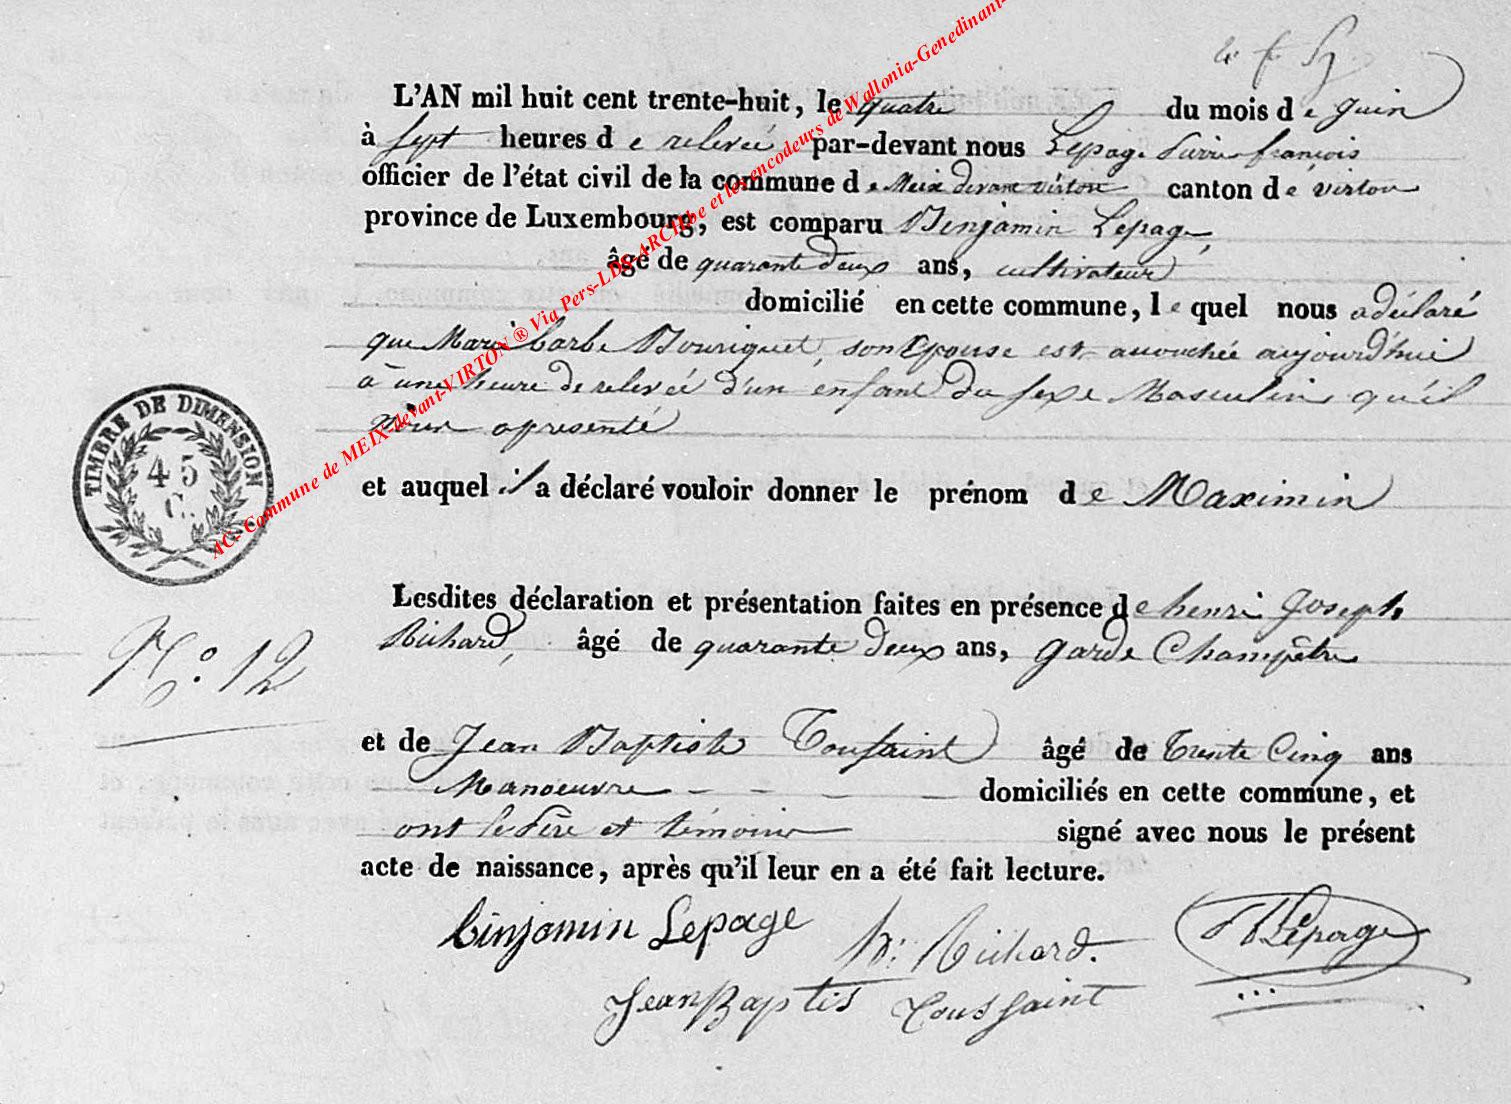 L'AN mil huit cent trente-huit, le quatre du mois de juin
à sept heures de relevée par-devant nous Lepage Pierre françois
officier de l'état civil de la commune de Meix devant virton canton de virton
province de Luxembourg, est comparu Benjamin Lepage,
âgé de quarante deux ans, cultivateur
domicilié en cette commune, lequel nous a déclaré
que Marie barbe Bouriquet, son Epouse est accouchée aujourd'hui
à une heure de relevée d'un enfant du sexe Masculin qu'il
nous a presenté
TIMBRE DE DIMENSION
45
C.
et auquel il a déclaré vouloir donner le prénom de Maximin
Lesdites déclaration et présentation faites en présence de henri Joseph
Richard, âgé de quarante deux ans, garde Champêtre
N° 12
et de Jean Baptiste Toussaint âgé de Trente Cinq ans
Manoeuvre - - - - domiciliés en cette commune, et
ont le Père et témoins signé avec nous le présent
acte de naissance, après qu'il leur en a été fait lecture.
binjamin Lepage
h: Richard.
Lepage
Jean Baptis Toussaint
AC- Commune de MEIX-devant-VIRTON ® Via Pers-LDS-ARCH.be et les encodeurs de Wallonia-Genedinant-